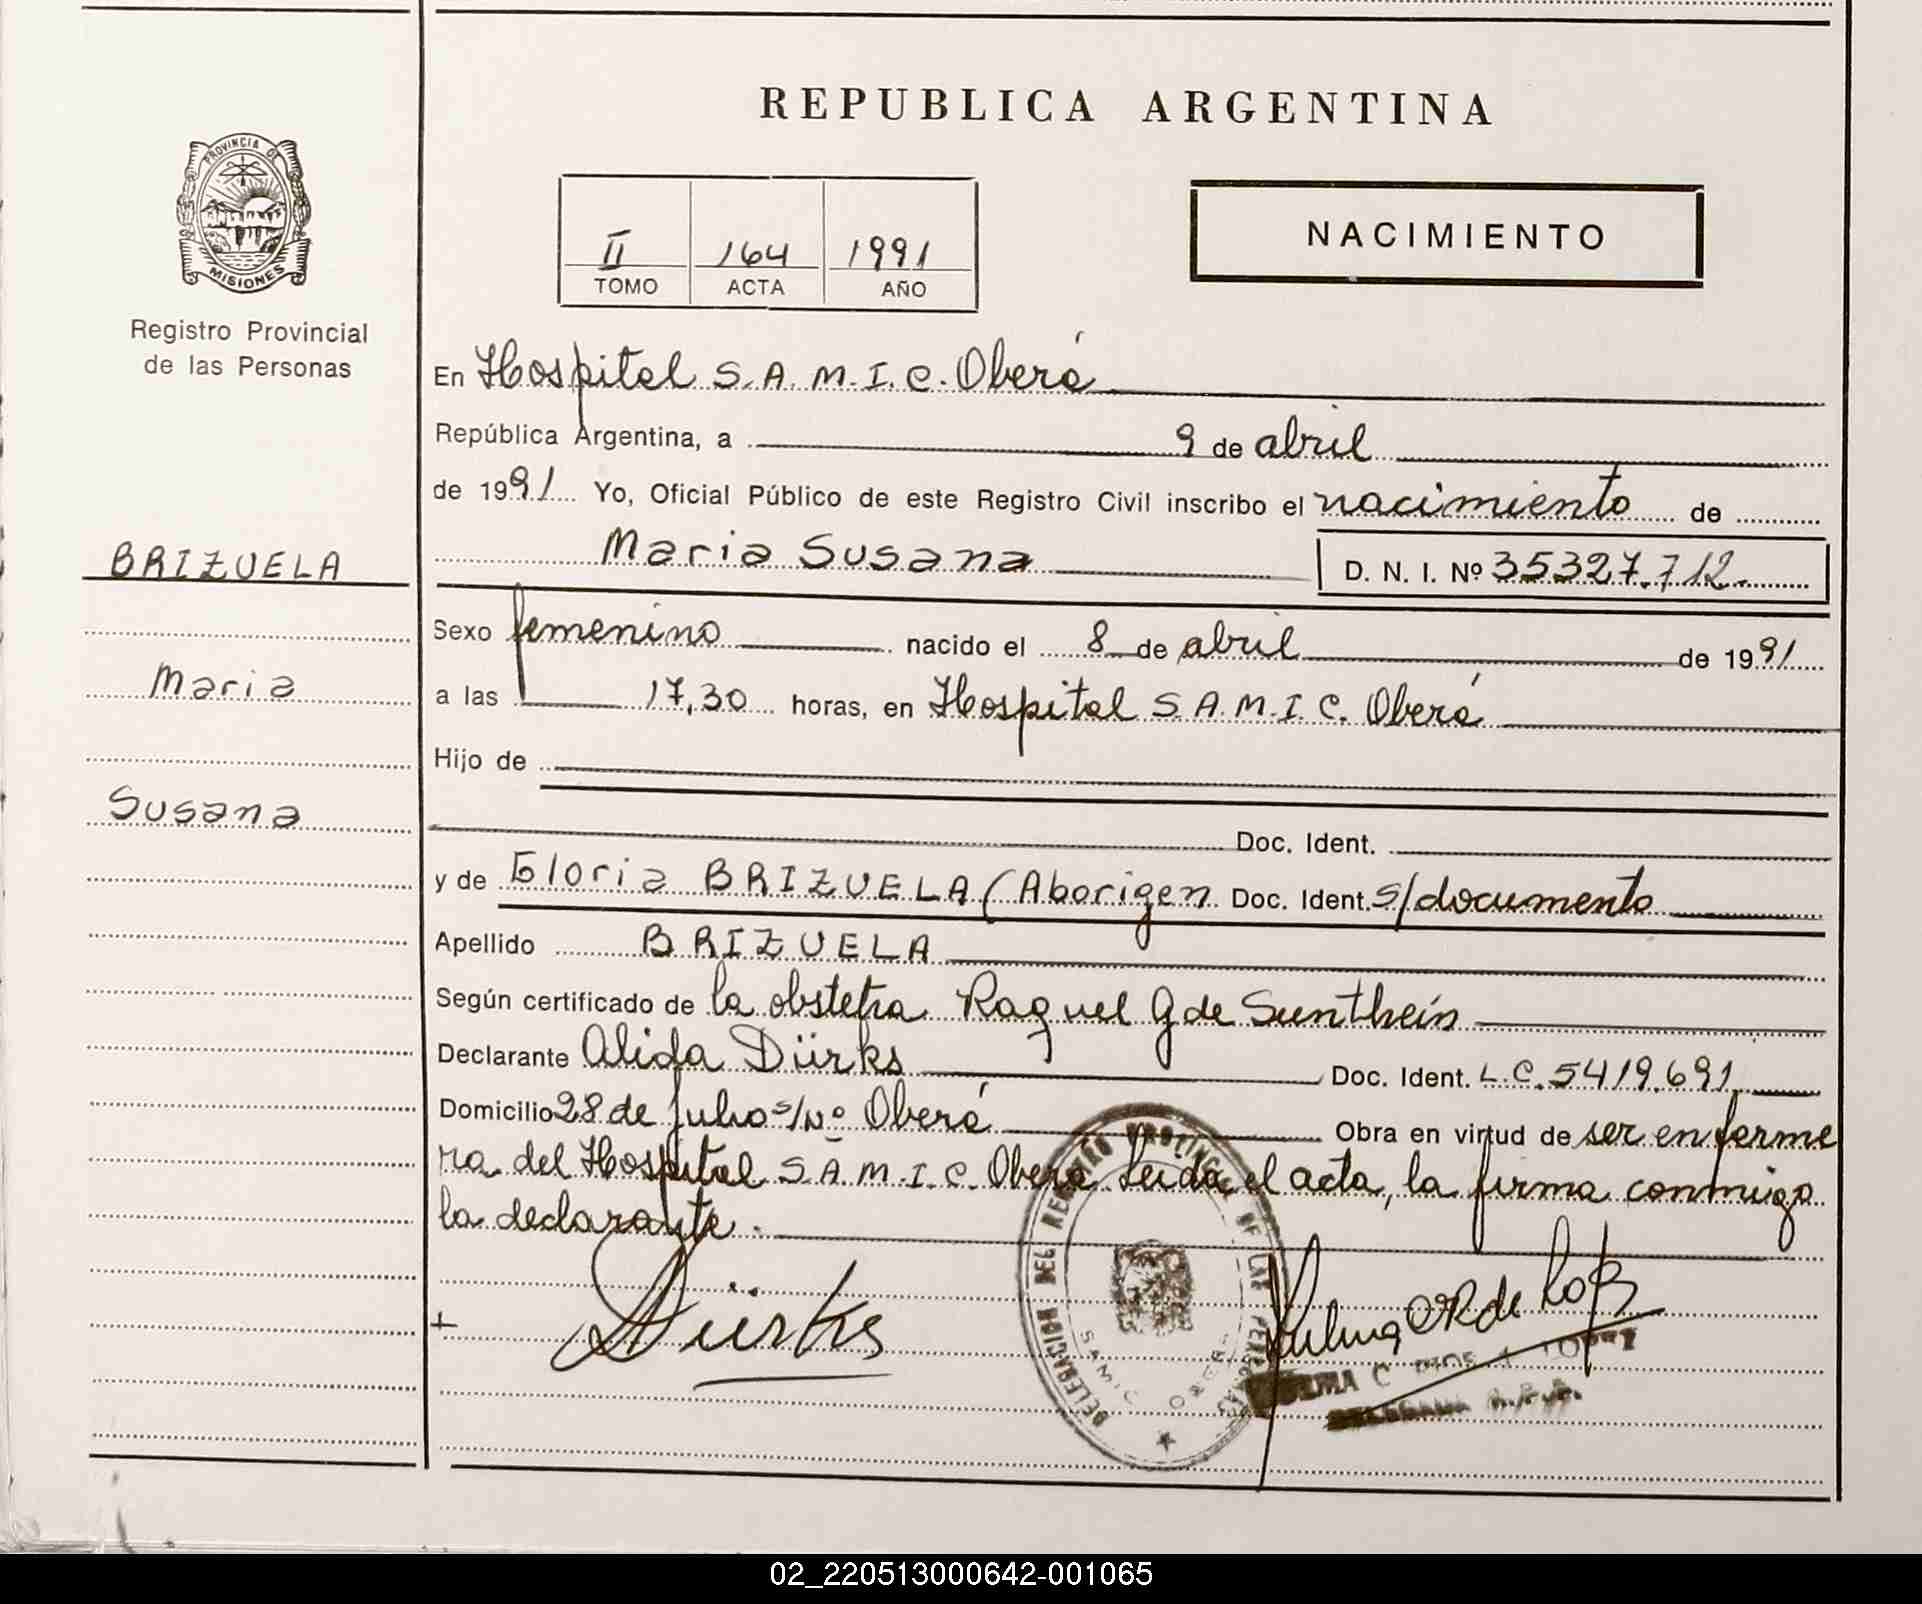 REPUBLICA ARGENTINA
PROVINCIA DE
MISIONES
Registro Provincial
de las Personas
II 164 1991
TOMO ACTA AÑO
NACIMIENTO
En Hospital S.A.M.I.C. Oberá
República Argentina, a 9 de abril
de 1991 Yo, Oficial Público de este Registro Civil inscribo el nacimiento de
BRIZUELA
Maria Susana D. N. I. Nº 35327.712.
Sexo femenino nacido el 8 de abril de 1991
Maria
a las 17,30 horas, en Hospital S.A.M.I.C. Oberá
Hijo de
Susana
Doc. Ident.
y de Gloria BRIZUELA (Aborigen Doc. Ident. s/documento
Apellido BRIZUELA
Según certificado de la obstetra Raquel G de Sunthein
Declarante Alida Dürks Doc. Ident. L.C. 5419.691
Domicilio 28 de Julio s/Nº Oberá Obra en virtud de ser enferme
ra del Hospital S.A.M.I.C. Oberá Leida el acta, la firma conmigo
la declarante.
DELEGACION DEL REGISTRO PROVINCIAL DE LAS PERSONAS
SAMIC OBERA
Dürks